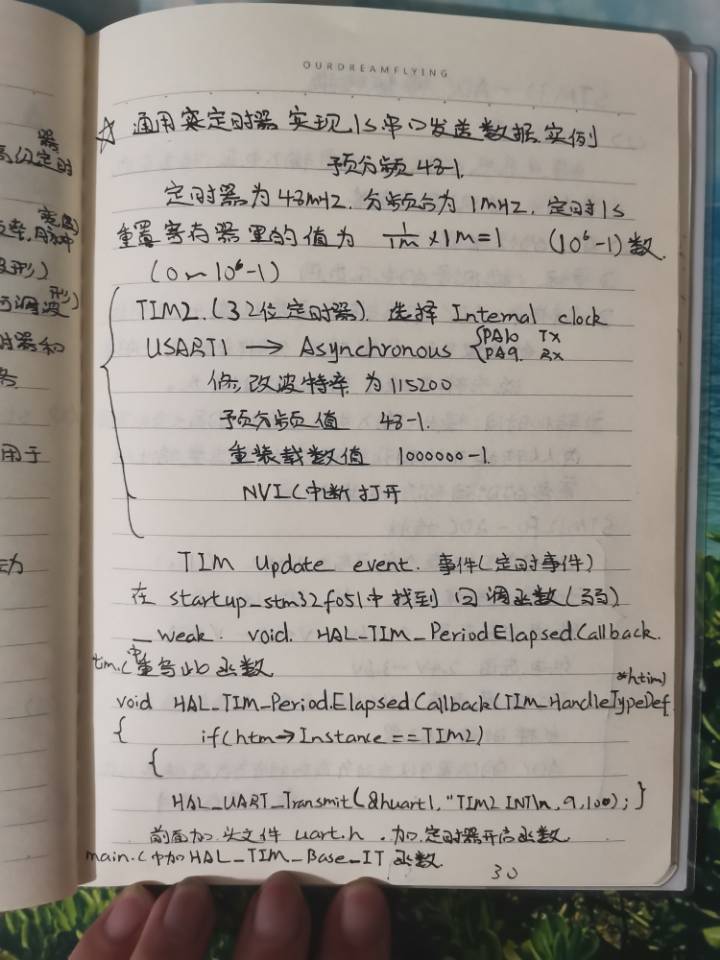 OURDREAMFLYING
☆ 通用定时器 实现 1s 串口发送数据 实例
预分频 48-1.
定时器为 48MHz. 分频后为 1MHz. 定时 1s
重置寄存器里的值为 1/1M ×1M=1 (10⁶-1) 数.
(0~10⁶-1)
TIM2. (32位定时器). 选择 Internal clock
USART1 → Asynchronous { PA10 TX
PA9. RX
修改波特率 为 115200
预分频值 48-1.
重装载数值 1000000-1.
NVIC中断打开
TIM Update event. 事件(定时事件)
在 startup_stm32f051中找到 回调函数(弱)
__weak. void. HAL_TIM_PeriodElapsedCallback.
tim.c中重写此函数
void HAL_TIM_PeriodElapsedCallback(TIM_HandleTypeDef *htim)
{ if(htm→Instance==TIM2)
{
HAL_UART_Transmit(&huart1,"TIM2 INT\n,9,100); }
前面加.头文件 uart.h .加.定时器开启函数.
main.c中加HAL_TIM_Base_IT 函数.
30
器
高级定时
宽度)
脉冲
波形)
可调波形)
时器和
用于
动